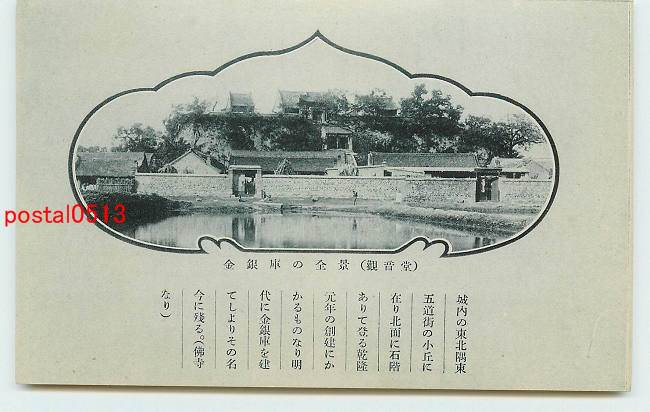 postal0513
金銀庫の全景（觀音堂）
城内の東北隅東
五道街の小丘に
在り北面に石階
ありて登る乾隆
元年の創建にか
かるものなり明
代に金銀庫を建
てしよりその名
今に殘る。（佛寺
なり）